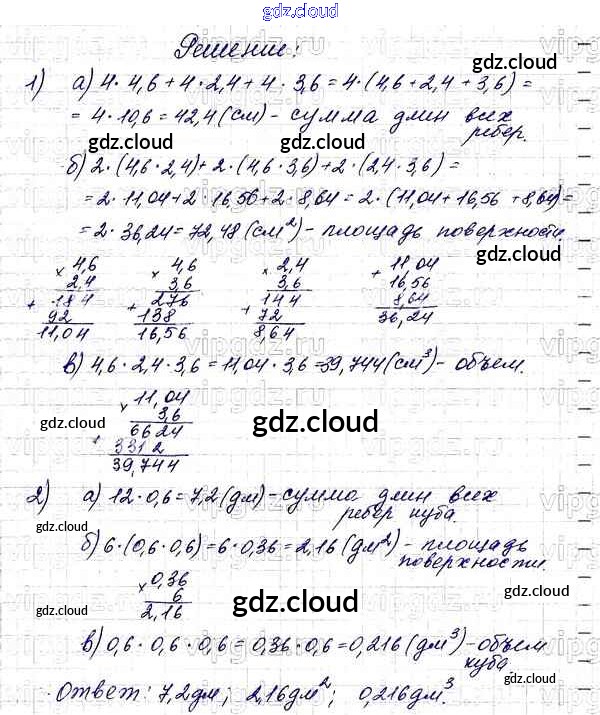 gdz.cloud
Решение:
1) а) 4 · 4,6 + 4 · 2,4 + 4 · 3,6 = 4 · (4,6 + 2,4 + 3,6) =
= 4 · 10,6 = 42,4 (см) - сумма длин всех
ребер.
gdz.cloud gdz.cloud
б) 2 · (4,6 · 2,4) + 2 · (4,6 · 3,6) + 2 · (2,4 · 3,6) =
= 2 · 11,04 + 2 · 16,56 + 2 · 8,64 = 2 · (11,04 + 16,56 + 8,64) =
= 2 · 36,24 = 72,48 (см²) - площадь поверхности.
gdz.cloud gdz.cloud
× 4,6 × 4,6 × 2,4 + 11,04
2,4 3,6 3,6 16,56
+ 184 + 276 + 144 8,64
92 138 72 36,24
11,04 16,56 8,64
в) 4,6 · 2,4 · 3,6 = 11,04 · 3,6 = 39,744 (см³) - объем.
× 11,04
3,6
+ 6624
3312
39,744
gdz.cloud gdz.cloud gdz.cloud
2) а) 12 · 0,6 = 7,2 (дм) - сумма длин всех
ребер куба.
gdz.cloud gdz.cloud
б) 6 · (0,6 · 0,6) = 6 · 0,36 = 2,16 (дм²) - площадь
поверхности.
× 0,36
6
2,16
gdz.cloud gdz.cloud gdz.cloud
в) 0,6 · 0,6 · 0,6 = 0,36 · 0,6 = 0,216 (дм³) - объем
куба
Ответ: 7,2 дм; 2,16 дм²; 0,216 дм³.
gdz.cloud gdz.cloud